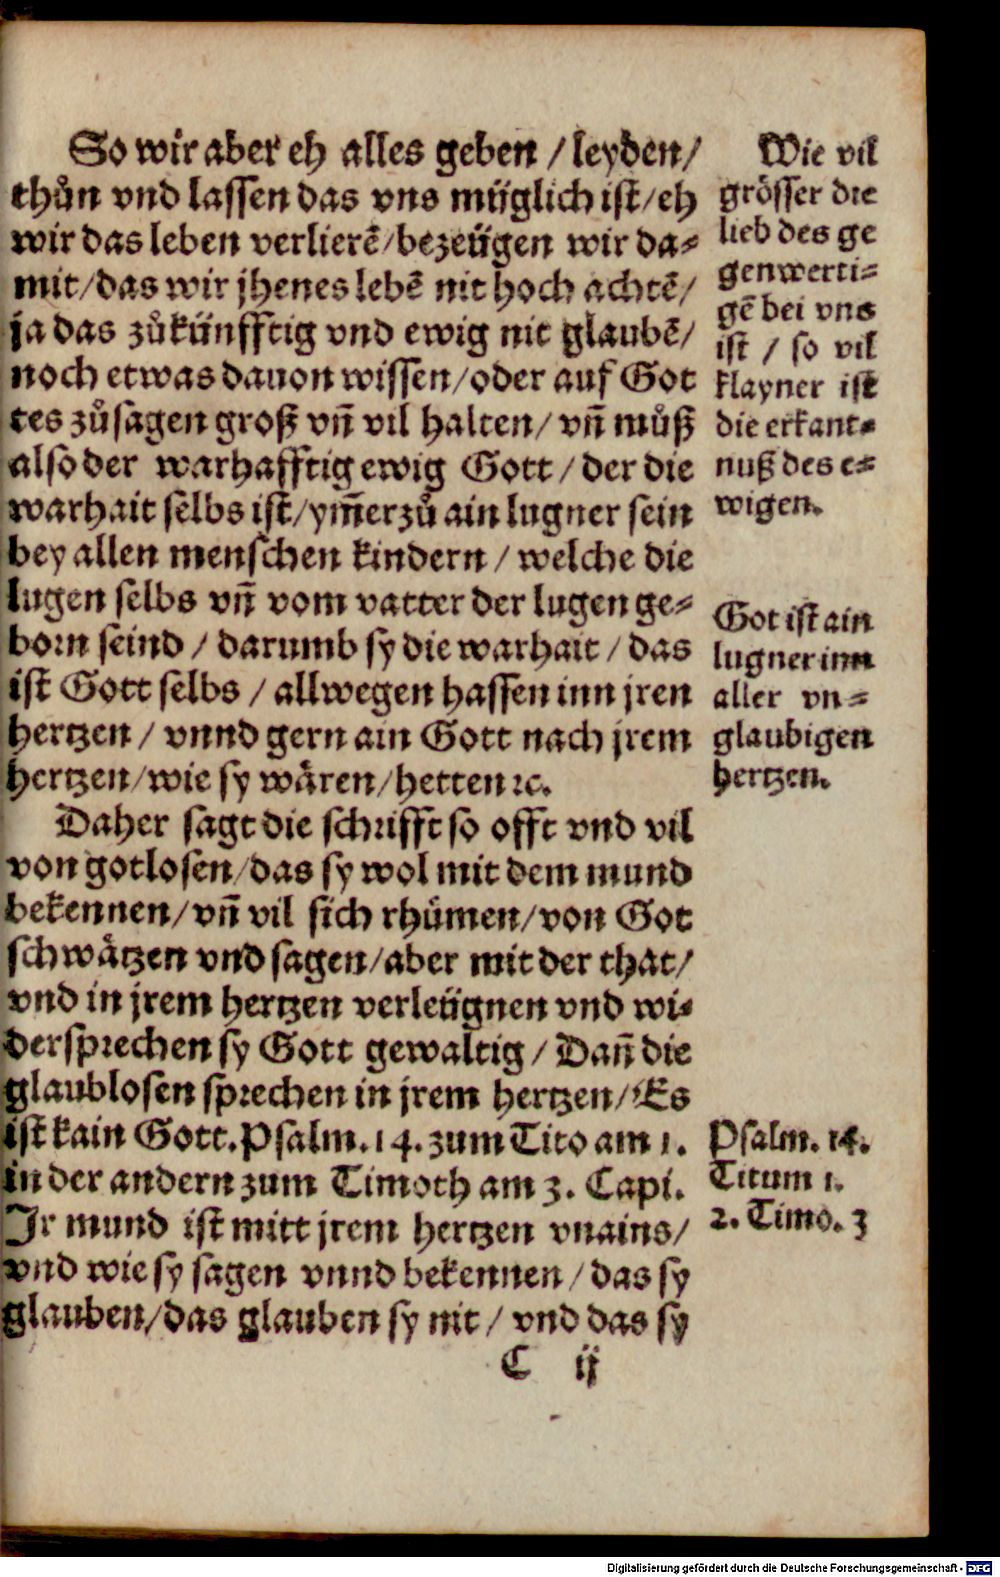 So wir aber eh alles geben / leyden /
thůn vnd lassen das vns müglich ist / eh
wir das leben verlierẽ / bezeügen wir da⸗
mit / das wir jhenes lebẽ nit hoch achtẽ /
ja das zůkünfftig vnd ewig nit glaubẽ /
noch etwas dauon wissen / oder auf Got
tes zůsagen groß vñ vil halten / vñ můß
also der warhafftig ewig Gott / der die
warhait selbs ist / ym̃erzů ain lugner sein
bey allen menschen kindern / welche die
lugen selbs vñ vom vatter der lugen ge⸗
born seind / darumb sy die warhait / das
ist Gott selbs / allwegen hassen inn jren
hertzen / vnnd gern ain Gott nach jrem
hertzen / wie sy wåren / hetten ꝛc.
Daher sagt die schrifft so offt vnd vil
von gotlosen / das sy wol mit dem mund
bekennen / vñ vil sich rhümen / von Got
schwåtzen vnd sagen / aber mit der that /
vnd in jrem hertzen verleügnen vnd wi⸗
dersprechen sy Gott gewaltig / Dañ die
glaublosen sprechen in jrem hertzen / Es
ist kain Gott. Psalm. 14. zum Tito am 1.
in der andern zum Timoth am 3. Capi.
Jr mund ist mitt jrem hertzen vnains /
vnd wie sy sagen vnnd bekennen / das sy
glauben / das glauben sy nit / vnd das sy
C ij
Wie vil
grösser die
lieb des ge
genwerti⸗
gẽ bei vns
ist / so vil
klayner ist
die erkant⸗
nuß des e⸗
wigen.
Got ist ain
lugner inn
aller vn⸗
glaubigen
hertzen.
Psalm. 14.
Titum 1.
2. Timo. 3
Digitalisierung gefördert durch die Deutsche Forschungsgemeinschaft - DFG